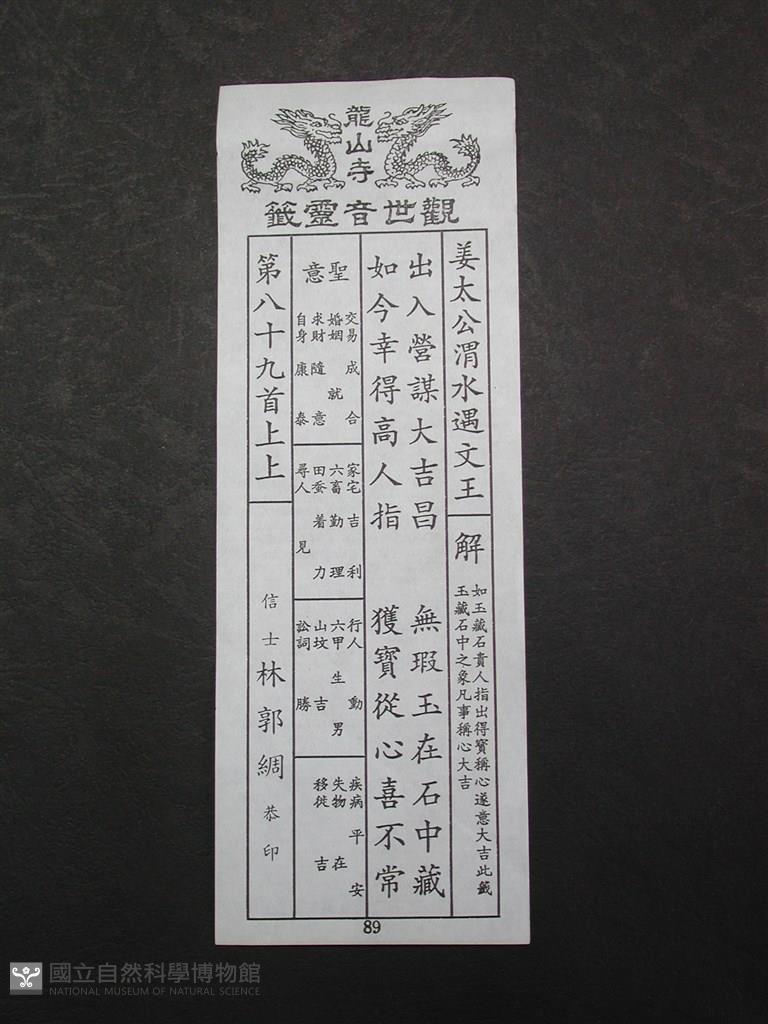 龍山寺
觀世音靈籤
姜太公渭水遇文王
解
如玉藏石貴人指出得寶稱心遂意大吉此籤
玉藏石中之象凡事稱心大吉
出入營謀大吉昌 無瑕玉在石中藏
如今幸得高人指 獲寶從心喜不常
聖意
交易 成合
婚姻 就
求財 隨意
自身 康泰
家宅 吉利
六畜 勤理
田蚕 着力
尋人 見
行人 動
六甲 生男
山坟 吉
訟詞 勝
疾病 平安
失物 在
移徙 吉
第八十九首上上
信士 林郭綢 恭印
89
國立自然科學博物館
NATIONAL MUSEUM OF NATURAL SCIENCE